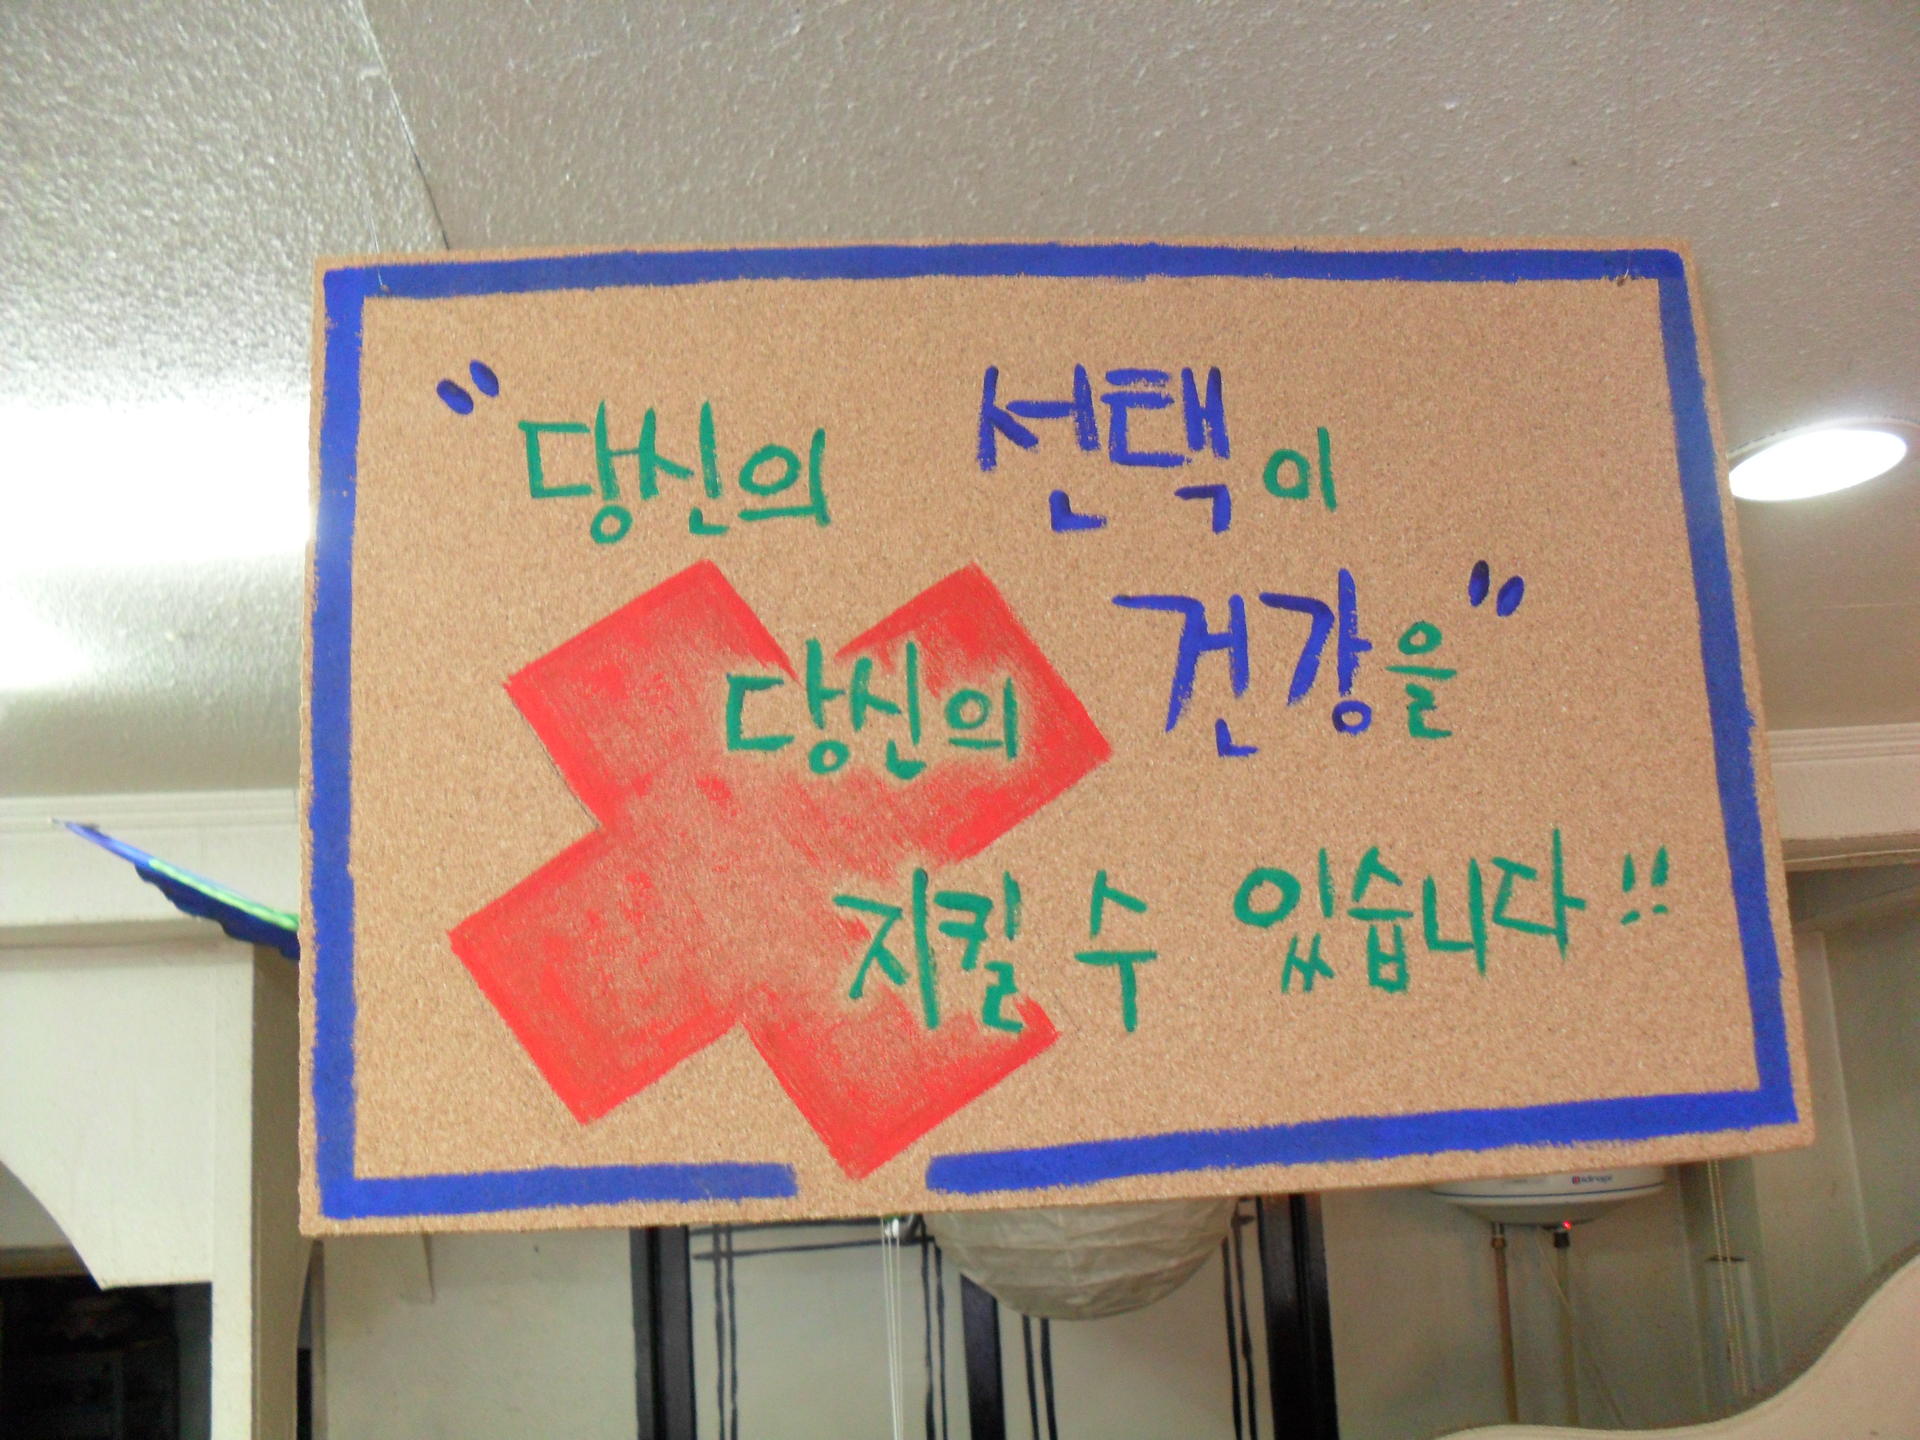 "당신의 선택이
당신의 건강을"
지킬 수 있습니다!!